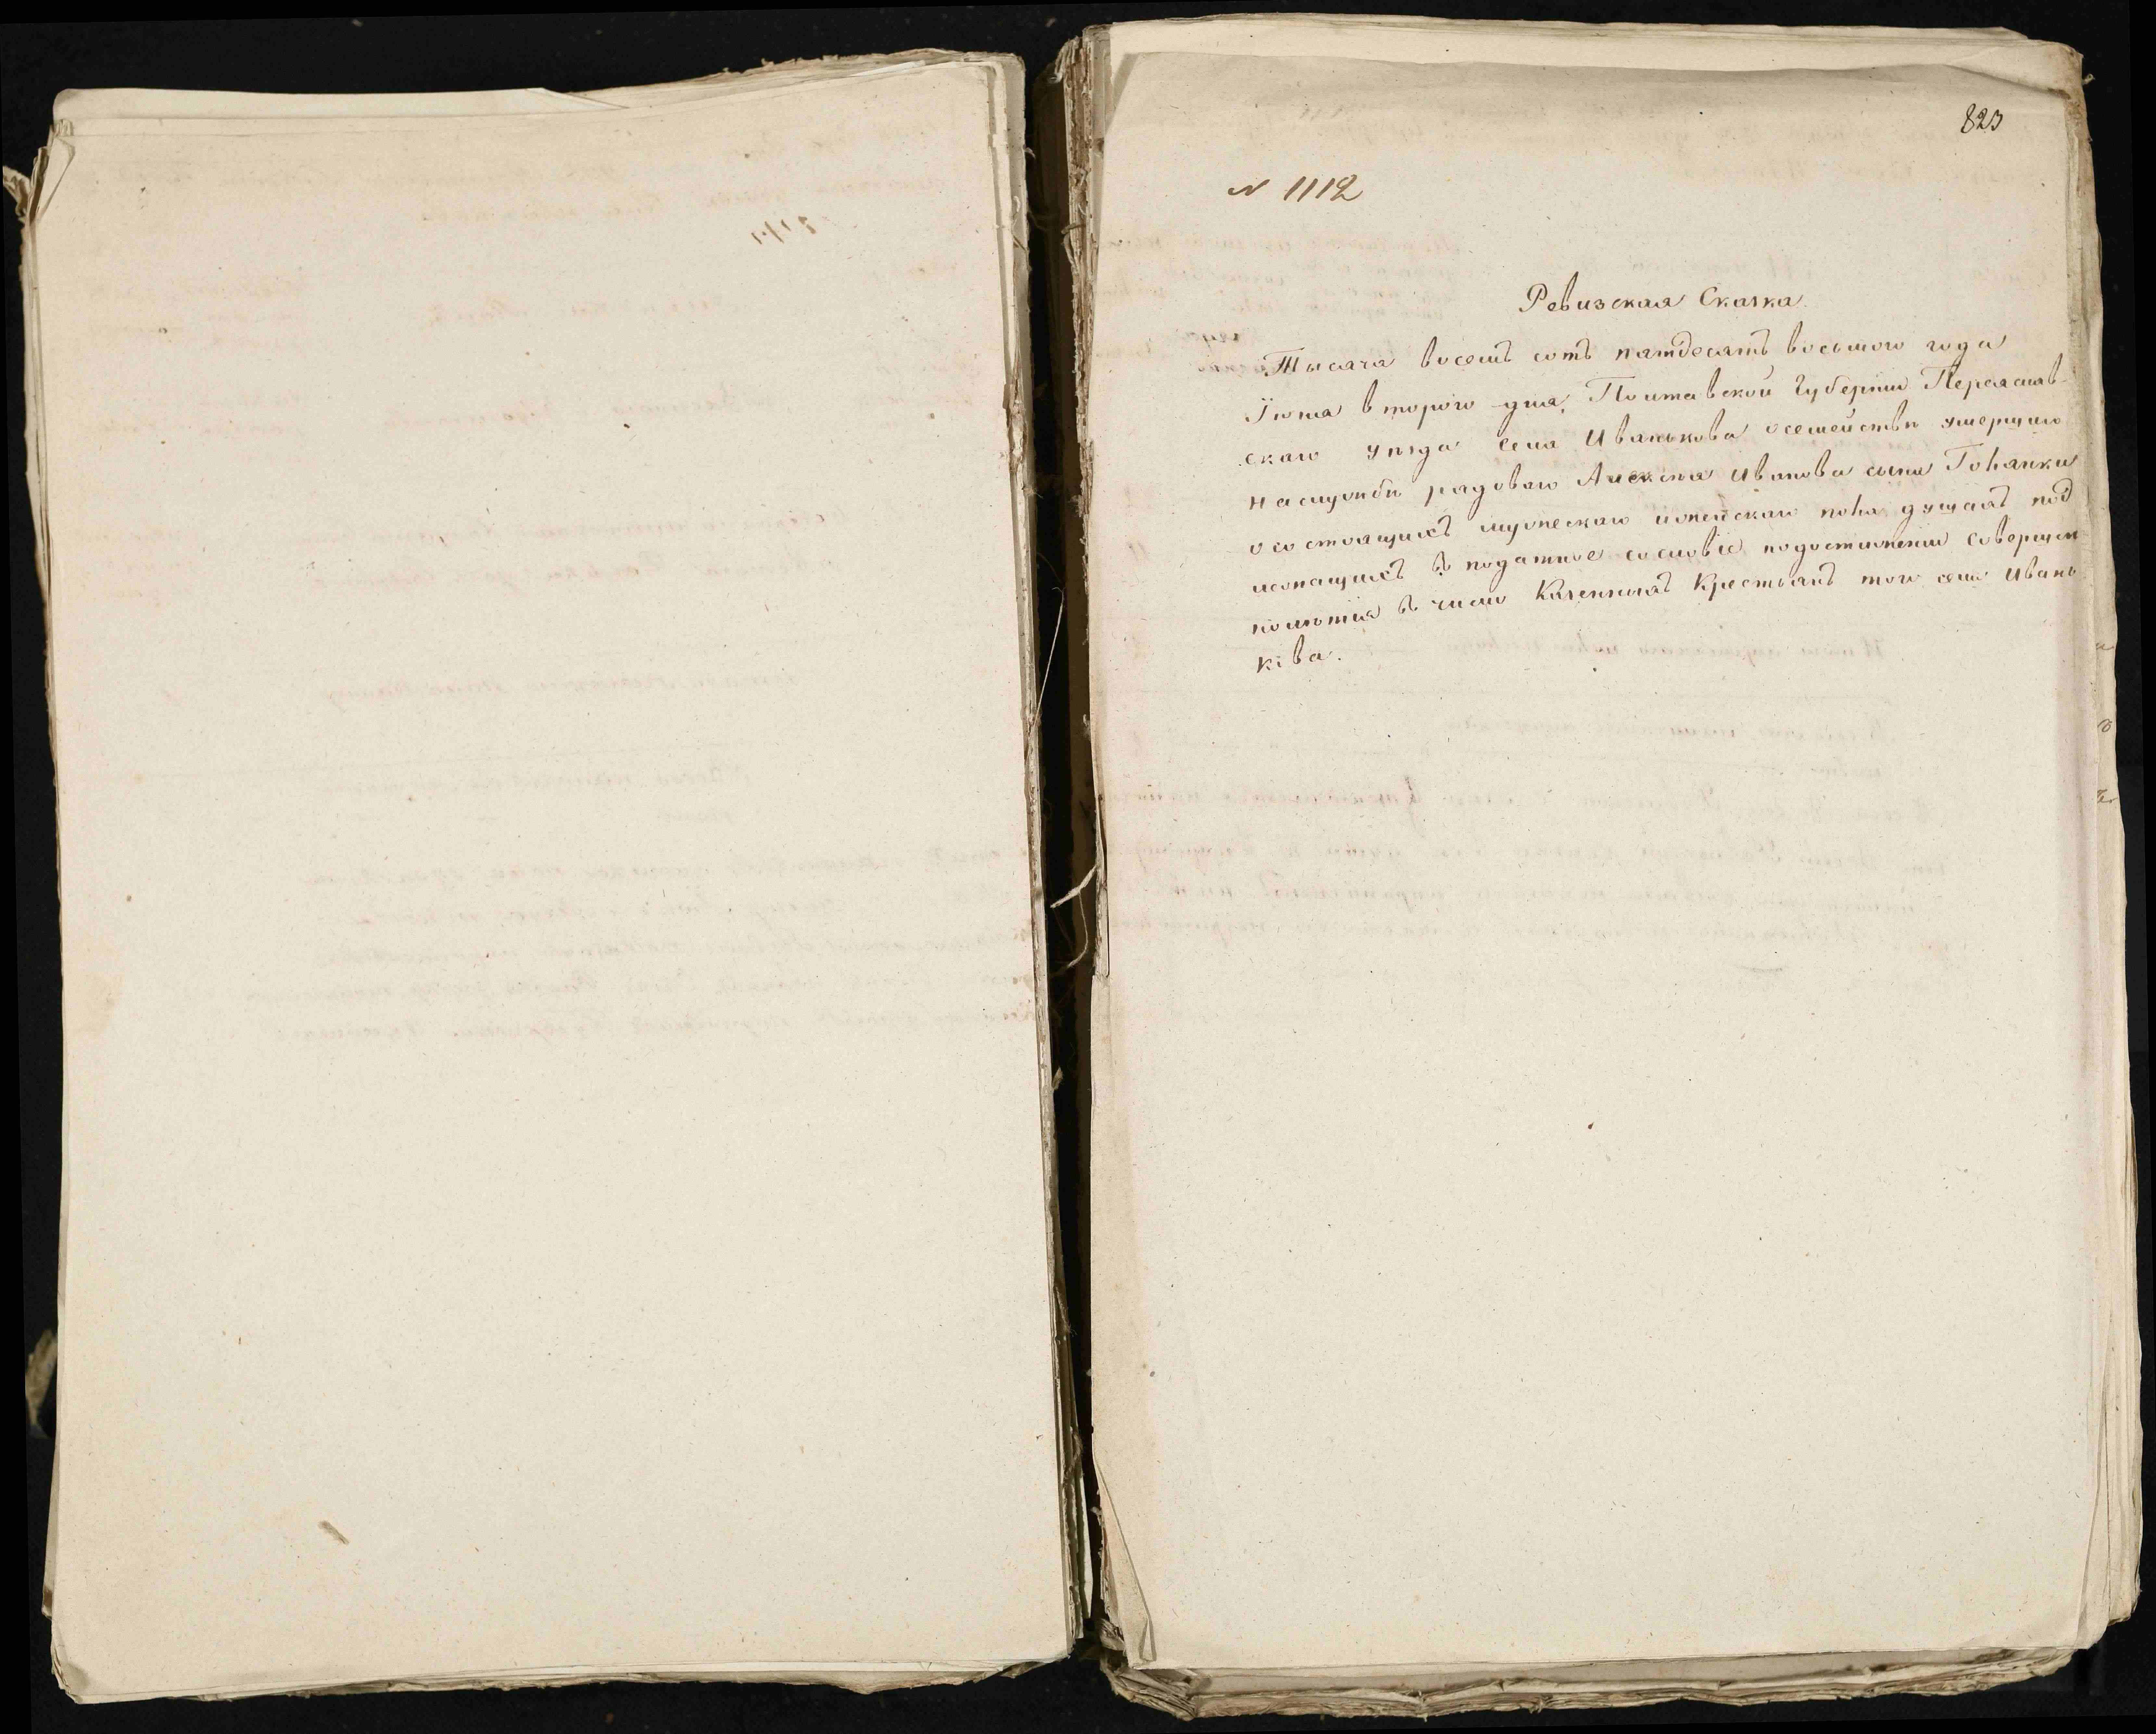 823
N 1112
Ревизская Сказка.
Тысяча восемъ сотъ пятдесятъ восьмого года
Іюня второго дня, Полтавской Губерніи Переяслав-
скаго уѣзда села Иванькова осемействѣ умершого
наслужбѣ рядового Алексѣя Иванова сына
осостоящихъ мужескаго иженскаго пола душахъ под
лежащихъ въ податное сословіе подостиженіи совершен
нолѣтія въ число Казенныхъ Крестьянъ того села Ивань
ківа.